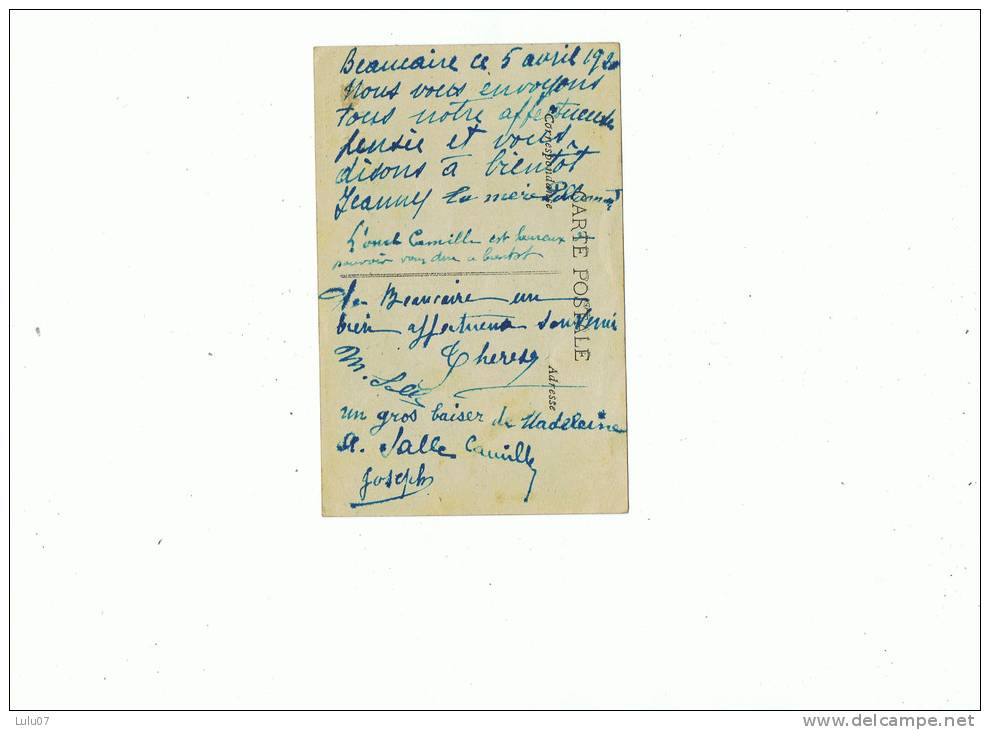 Beaucaire ce 5 avril 192
Nous vous envoyons
tous notre affectueuse
pensée et vous
disons à bientôt
Jeanne La mère
L'oncle Camille est heureux
pouvoir vous dire a bientot
De Beaucaire un
bien affectueux souvenir
Therese
M.
un gros baiser de Madeleine
A. Salle Camille
Joseph
CARTE POSTALE
Correspondance
Adresse
Lulu07
www.delcampe.net